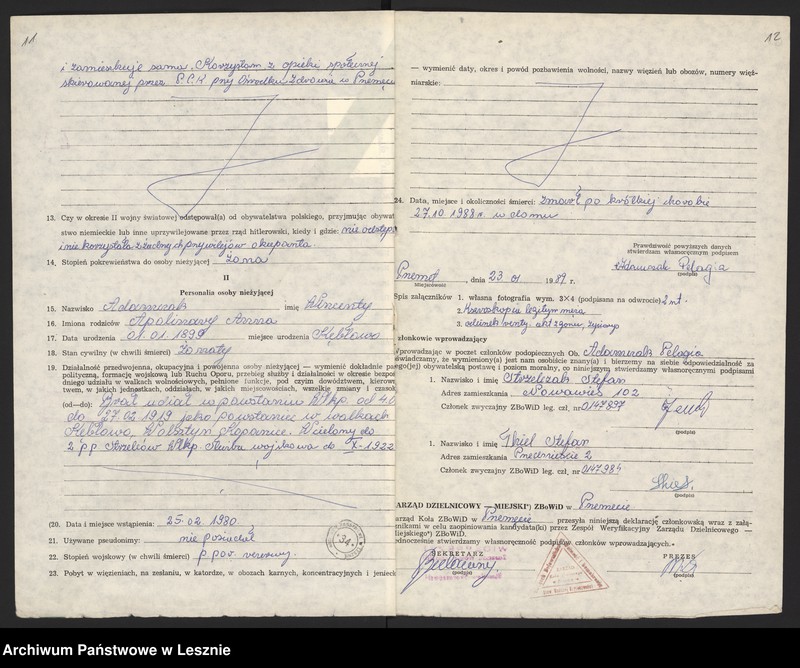 11
i zamieszkuje sama. Korzystam z opieki społecznej
skierowanej przez P.C.K przy Ośrodku Zdrowia w Przemęcie
13. Czy w okresie II wojny światowej odstępował(a) od obywatelstwa polskiego, przyjmując obywat
stwo niemieckie lub inne uprzywilejowane przez rząd hitlerowski, kiedy i gdzie: nie odstęp
i nie korzystała z żadnych przywilejów okupanta.
14. Stopień pokrewieństwa do osoby nieżyjącej żona
II
Personalia osoby nieżyjącej
15. Nazwisko Adamczak imię Wincenty
16. Imiona rodziców Apolinary Anna
17. Data urodzenia 01.01.1899 miejsce urodzenia Kębłowo
18. Stan cywilny (w chwili śmierci) żonaty
19. Działalność przedwojenna, okupacyjna i powojenna osoby nieżyjącej) — wymienić dokładnie pas
polityczną, formację wojskową lub Ruchu Oporu, przebieg służby i działalności w okresie bezpoś
dniego udziału w walkach wolnościowych, pełnione funkcje, pod czyim dowództwem, kierown
twem, w jakich jednostkach, oddziałach, w jakich miejscowościach, wszelkie zmiany i czasok
(od—do): Brał udział w powstaniu Wlkp. od 4.01
do 27.02.1919 jako powstaniec w walkach
Kębłowo, Wolsztyn, Kopanica. Wcielony do
2 pp Strzelców Wlkp. Służba wojskowa do X-1922
(20. Data i miejsce wstąpienia: 25.02.1980
21. Używane pseudonimy: nie posiadał
22. Stopień wojskowy (w chwili śmierci) ppor. rezerwy.
23. Pobyt w więzieniach, na zesłaniu, w katordze, w obozach karnych, koncentracyjnych i jenieck
34
12
— wymienić daty, okres i powód pozbawienia wolności, nazwy więzień lub obozów, numery więź-
niarskie:
24. Data, miejsce i okoliczności śmierci: zmarł po krótkiej chorobie
27.10.1988 r. w domu
Prawdziwość powyższych danych
stwierdzam własnoręcznym podpisem
Adamczak Pelagia
(podpis)
Przemęt, dnia 23 01 1989 r.
Miejscowość
Spis załączników 1. własna fotografia wym. 3×4 (podpisana na odwrocie) 2 szt.
2. Kserokopia legitymacji
3. odcinek renty. akt zgonu, życiorys
członkowie wprowadzający
Wprowadzając w poczet członków podopiecznych Ob. Adamczak Pelagia
świadczamy, że wymieniony(a) jest nam osobiście znany(a) i bierzemy na siebie odpowiedzialność za
jego(jej) obywatelską postawę i poziom moralny, co niniejszym stwierdzamy własnoręcznymi podpisami
1. Nazwisko i imię Strzelczak Stefan
Adres zamieszkania Nowawieś 102
Członek zwyczajny ZBoWiD leg. czł. nr 0147897
(podpis)
1. Nazwisko i imię Skiel Stefan
Adres zamieszkania 2
Członek zwyczajny ZBoWiD leg. czł. nr 0147984
(podpis)
ARZĄD DZIELNICOWY — MIEJSKI*) ZBoWiD w Przemęcie
arząd Koła ZBoWiD w Przemęcie przesyła niniejszą deklarację członkowską wraz z załą-
znikami w celu zaopiniowania kandydata(ki) przez Zespół Weryfikacyjny Zarządu Dzielnicowego —
Miejskiego*) ZBoWiD.
ednocześnie stwierdzamy własnoręczność podpisów członków wprowadzających.
SEKRETARZ
(podpis)
PREZES
(podpis)
Archiwum Państwowe w Lesznie